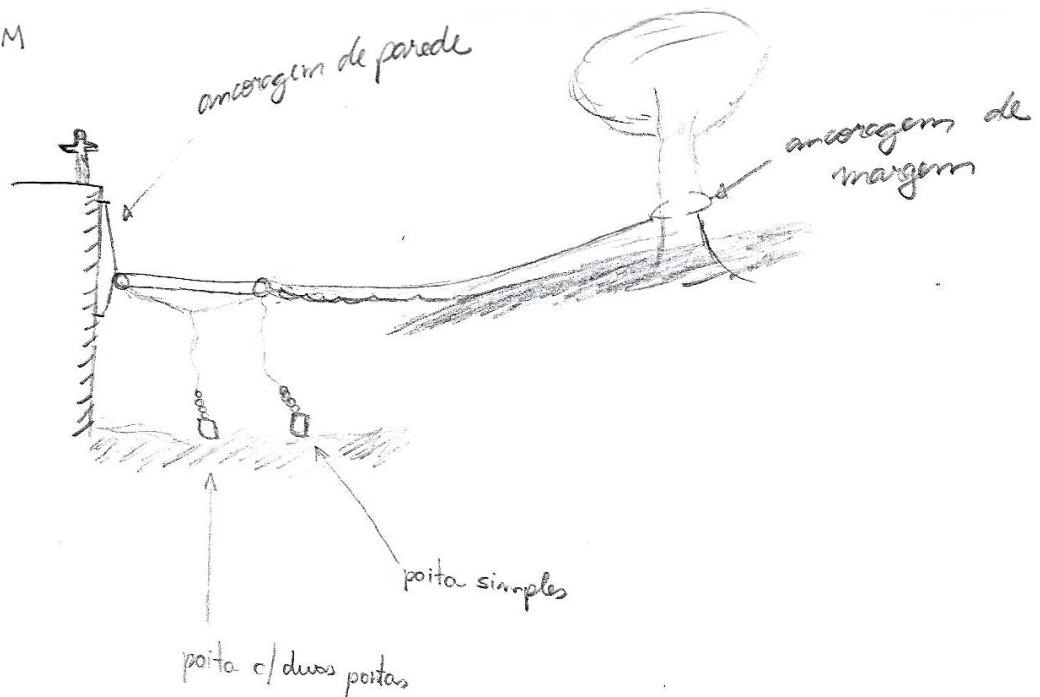 M
ancoragem de parede
ancoragem de
margem
poita simples
poita c/ duas pontas